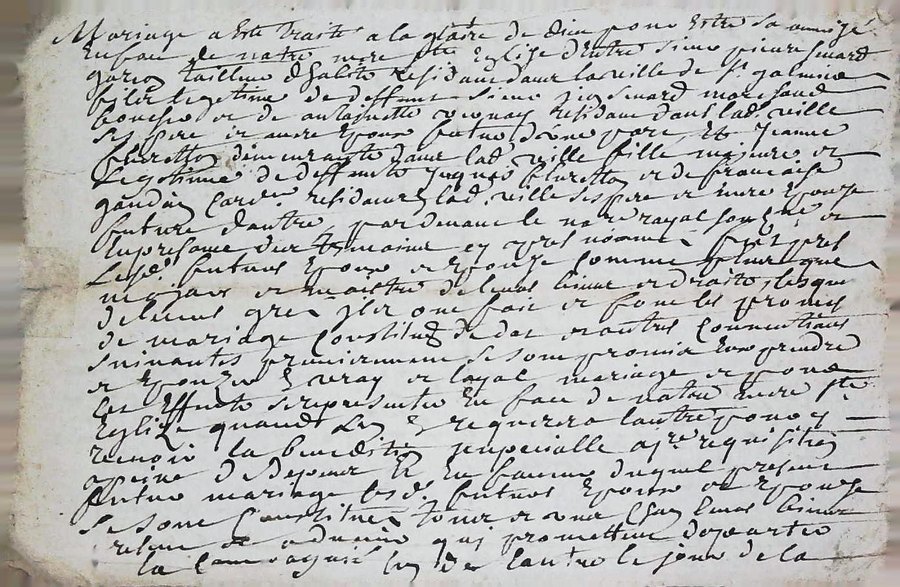 Mariage a Esté traité a la gloire de dieu pour Estre sa
En face de notre mere Ste Eglise d'Entre sieur pierre simard
garçon tailleur d'habits Residant dans la ville de St galmier
fils legitime de deffunt sieur simard marchand
et de antoinette Residant dans lad. ville
ses pere et mere Epoux futur d'une part, Et Jeanne
demeurante dans lad. ville fille majeure et
Legitime de deffunt et de françoise
residants lad. ville ses pere et mere Epouze
future d'autre, pardevant le no.re royal soussigné et
En presance des temoins cy apres nommés
Lesd. futurs Epoux et Epouze comme
et maistre de leurs biens et droits, lesque
de leurs gré ont fait et font les promes
de mariage Constitun de dot et autres Conventions
suivantes premierement se sont promis Eux prendre
et Epouzer En vray et loyal mariage et pour
Cet Effect se representer En face de notre mere Ste
Eglise quand Lun En requerera lautre pour y
recevoir la benediction a pre requisition
a peine de depens Et En faveur duquel present
futur mariage lesd. futurs Epoux et Epouze
se sont Constitués tous et uns Chacuns leurs biens
qui promettent d'aporter
la lun de lautre le jour de la